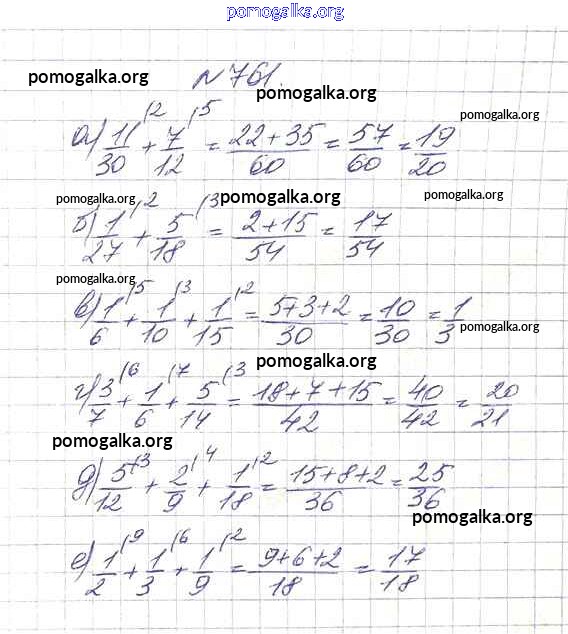 pomogalka.org
№ 761.
pomogalka.org
pomogalka.org
pomogalka.org
а) 11/30 \2 + 7/12 \5 = 22+35/60 = 57/60 = 19/20
pomogalka.org
pomogalka.org
pomogalka.org
б) 1/27 \2 + 5/18 \3 = 2+15/54 = 17/54
pomogalka.org
в) 1/6 \5 + 1/10 \3 + 1/15 \2 = 5+3+2/30 = 10/30 = 1/3
pomogalka.org
pomogalka.org
г) 3/7 \6 + 1/6 \7 + 5/14 \3 = 18+7+15/42 = 40/42 = 20/21
pomogalka.org
д) 5/12 \3 + 2/9 \4 + 1/18 \2 = 15+8+2/36 = 25/36
pomogalka.org
е) 1/2 \9 + 1/3 \6 + 1/9 \2 = 9+6+2/18 = 17/18